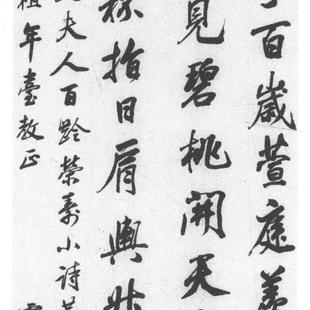 百歲萱庭
見碧桃開天
指日肩輿
夫人百齡榮壽小詩
年臺教正